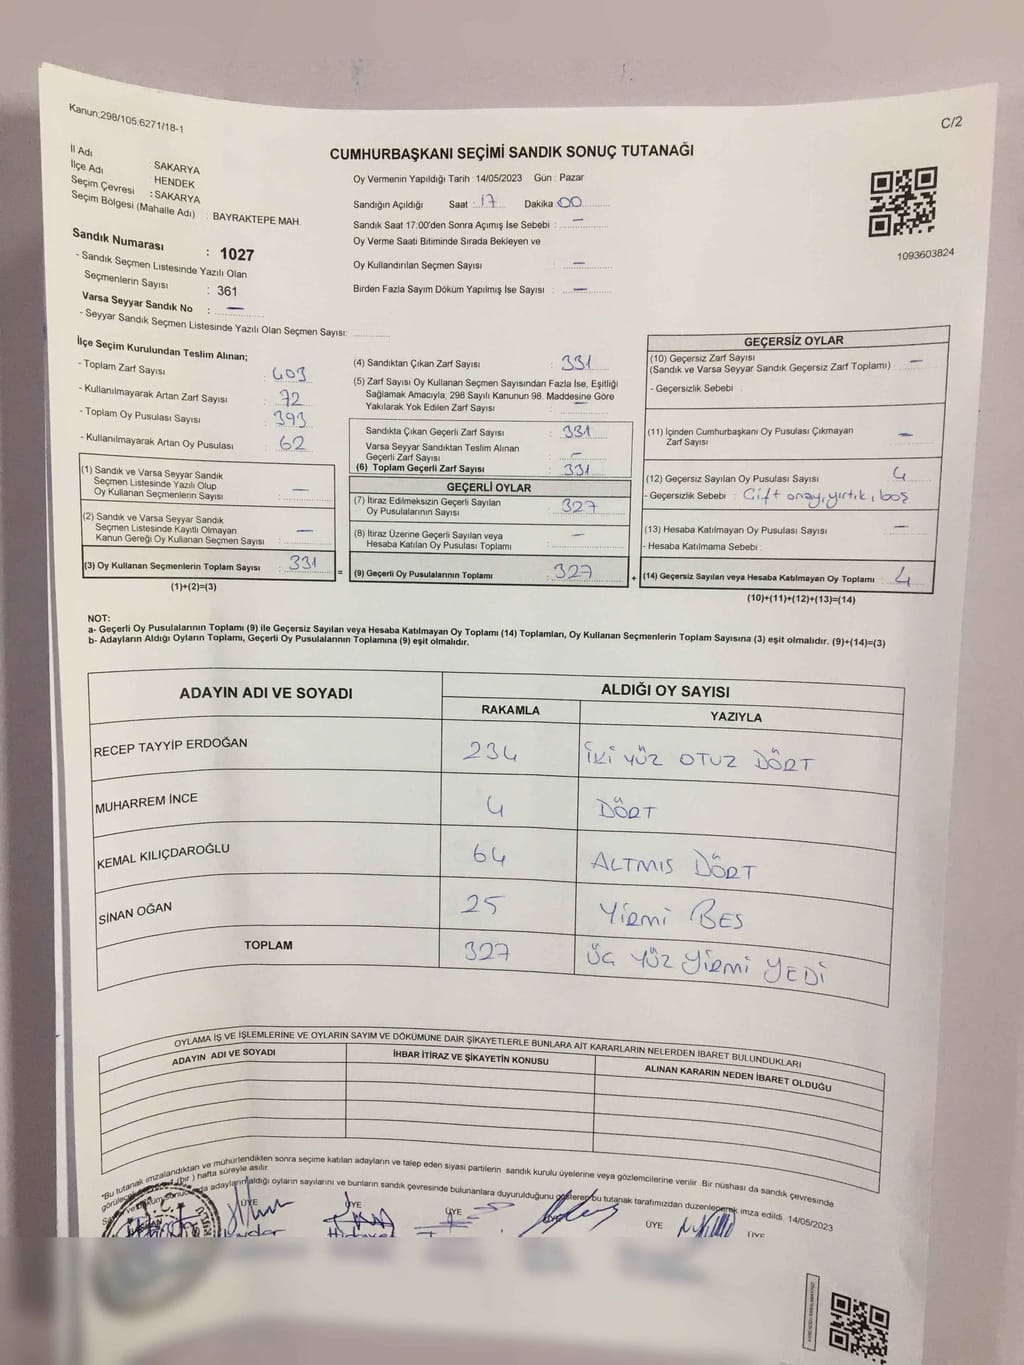 Kanun;298/105;6271/18-1
C/2
CUMHURBAŞKANI SEÇİMİ SANDIK SONUÇ TUTANAĞI
İl Adı : SAKARYA
İlçe Adı : HENDEK
Seçim Çevresi : SAKARYA
Seçim Bölgesi (Mahalle Adı) : BAYRAKTEPE MAH.
Sandık Numarası : 1027
- Sandık Seçmen Listesinde Yazılı Olan
Seçmenlerin Sayısı : 361
Varsa Seyyar Sandık No : —
- Seyyar Sandık Seçmen Listesinde Yazılı Olan Seçmen Sayısı:
Oy Vermenin Yapıldığı Tarih : 14/05/2023 Gün : Pazar
Sandığın Açıldığı Saat : 17 Dakika 00
Sandık Saat 17:00'den Sonra Açımış İse Sebebi : —
Oy Verme Saati Bitiminde Sırada Bekleyen ve
Oy Kullandırılan Seçmen Sayısı : —
Birden Fazla Sayım Döküm Yapılmış İse Sayısı : —
1093603824
İlçe Seçim Kurulundan Teslim Alınan;
- Toplam Zarf Sayısı : 403
- Kullanılmayarak Artan Zarf Sayısı : 72
- Toplam Oy Pusulası Sayısı : 393
- Kullanılmayarak Artan Oy Pusulası : 62
(1) Sandık ve Varsa Seyyar Sandık
Seçmen Listesinde Yazılı Olup
Oy Kullanan Seçmenlerin Sayısı : —
(2) Sandık ve Varsa Seyyar Sandık
Seçmen Listesinde Kayıtlı Olmayan
Kanun Gereği Oy Kullanan Seçmen Sayısı : —
(3) Oy Kullanan Seçmenlerin Toplam Sayısı : 331
(1)+(2)=(3)
=
(4) Sandıktan Çıkan Zarf Sayısı : 331
(5) Zarf Sayısı Oy Kullanan Seçmen Sayısından Fazla İse, Eşitliği
Sağlamak Amacıyla; 298 Sayılı Kanunun 98. Maddesine Göre
Yakılarak Yok Edilen Zarf Sayısı : —
Sandıkta Çıkan Geçerli Zarf Sayısı : 331
Varsa Seyyar Sandıktan Teslim Alınan
Geçerli Zarf Sayısı : —
(6) Toplam Geçerli Zarf Sayısı : 331
GEÇERLİ OYLAR
(7) İtiraz Edilmeksizin Geçerli Sayılan
Oy Pusulalarının Sayısı : 327
(8) İtiraz Üzerine Geçerli Sayılan veya
Hesaba Katılan Oy Pusulası Toplamı : —
(9) Geçerli Oy Pusulalarının Toplamı : 327
+
GEÇERSİZ OYLAR
(10) Geçersiz Zarf Sayısı
(Sandık ve Varsa Seyyar Sandık Geçersiz Zarf Toplamı) : —
- Geçersizlik Sebebi :
(11) İçinden Cumhurbaşkanı Oy Pusulası Çıkmayan
Zarf Sayısı : —
(12) Geçersiz Sayılan Oy Pusulası Sayısı : 4
- Geçersizlik Sebebi : Çift onay, yırtık, boş
(13) Hesaba Katılmayan Oy Pusulası Sayısı : —
- Hesaba Katılmama Sebebi :
(14) Geçersiz Sayılan veya Hesaba Katılmayan Oy Toplamı : 4
(10)+(11)+(12)+(13)=(14)
NOT:
a- Geçerli Oy Pusulalarının Toplamı (9) ile Geçersiz Sayılan veya Hesaba Katılmayan Oy Toplamı (14) Toplamları, Oy Kullanan Seçmenlerin Toplam Sayısına (3) eşit olmalıdır. (9)+(14)=(3)
b- Adayların Aldığı Oyların Toplamı, Geçerli Oy Pusulalarının Toplamına (9) eşit olmalıdır.
ADAYIN ADI VE SOYADI
ALDIĞI OY SAYISI
RAKAMLA YAZIYLA
RECEP TAYYİP ERDOĞAN 234 İKİ YÜZ OTUZ DÖRT
MUHARREM İNCE 4 DÖRT
KEMAL KILIÇDAROĞLU 64 ALTMIS DÖRT
SİNAN OĞAN 25 YİRMİ BES
TOPLAM 327 ÜÇ YÜZ YİRMİ YEDİ
OYLAMA İŞ VE İŞLEMLERİNE VE OYLARIN SAYIM VE DÖKÜMÜNE DAİR ŞİKAYETLERLE BUNLARA AİT KARARLARIN NELERDEN İBARET BULUNDUKLARI
ADAYIN ADI VE SOYADI İHBAR İTİRAZ VE ŞİKAYETİN KONUSU ALINAN KARARIN NEDEN İBARET OLDUĞU
"Bu tutanak imzalandıktan ve mühürlendikten sonra seçime katılan adayların ve talep eden siyasi partilerin sandık kurulu üyelerine veya gözlemcilerine verilir. Bir nüshası da sandık çevresinde
(bir) hafta süreyle asılır.
adayların aldığı oyların sayılarını ve bunların sandık çevresinde bulunanlara duyurulduğunu gösteren bu tutanak tarafımızdan düzenlenerek imza edildi. 14/05/2023
ÜYE ÜYE ÜYE ÜYE ÜYE